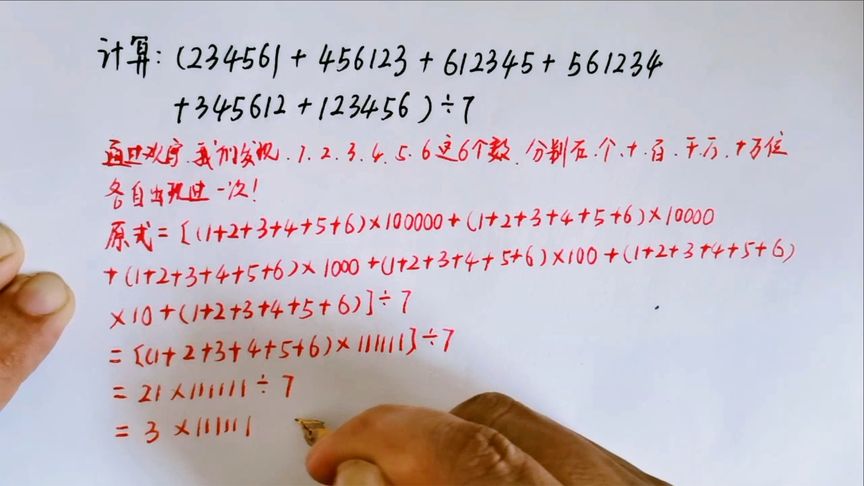 计算:(234561+456123+612345+561234
+345612+123456)÷7
通过观察,我们发现.1.2.3.4.5.6这6个数.分别在.个.十.百.千.万.十万位
各自出现过一次!
原式=[(1+2+3+4+5+6)×100000+(1+2+3+4+5+6)×10000
+(1+2+3+4+5+6)×1000+(1+2+3+4+5+6)×100+(1+2+3+4+5+6)
×10+(1+2+3+4+5+6)]÷7
=[(1+2+3+4+5+6)×111111]÷7
=21×111111÷7
=3×111111